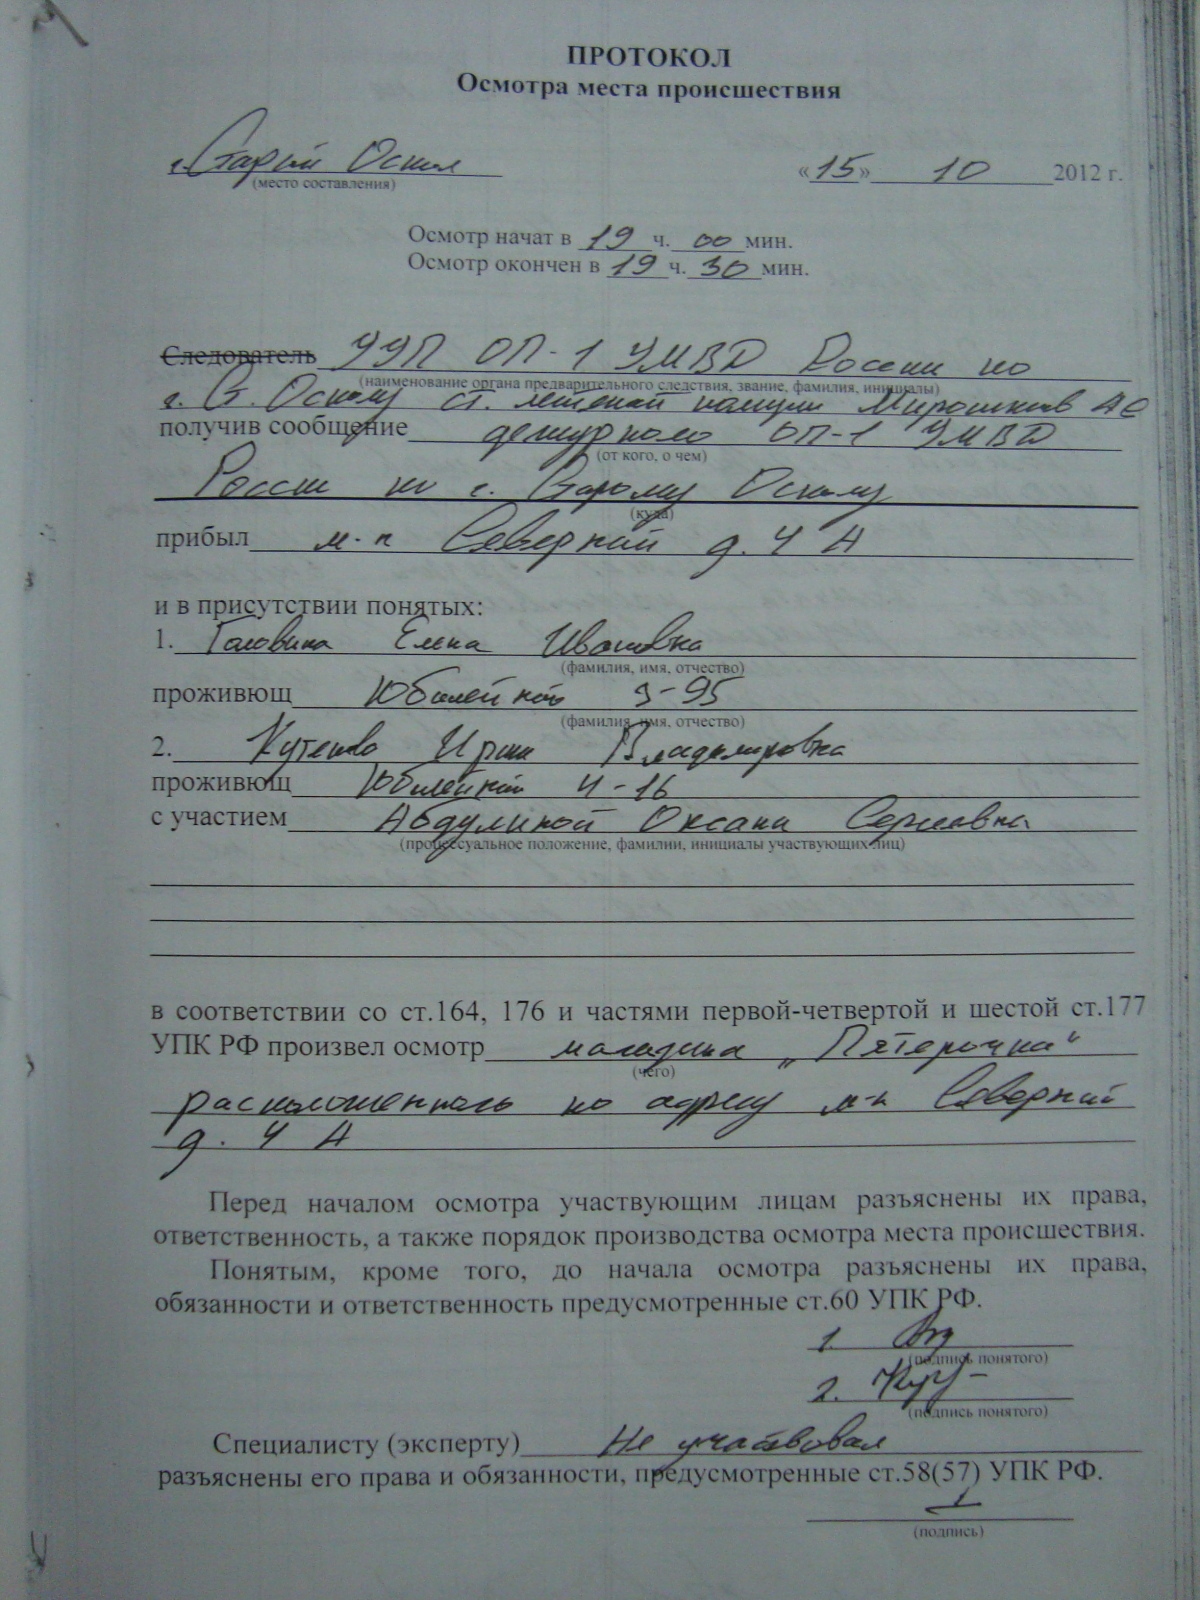 ПРОТОКОЛ
Осмотра места происшествия
г. Старый Оскол «15» 10 2012 г.
(место составления)
Осмотр начат в 19 ч. 00 мин.
Осмотр окончен в 19 ч. 30 мин.
Следователь УУП ОП-1 УМВД России по
(наименование органа предварительного следствия, звание, фамилия, инициалы)
г. Ст. Осколу ст. лейтенант полиции Мирошников АС
получив сообщение дежурного ОП-1 УМВД
(от кого, о чем)
России по г. Старому Осколу
(куда)
прибыл м-н Северный д. 4 А
и в присутствии понятых:
1. Головина Елена Ивановна
(фамилия, имя, отчество)
проживющ Юбилейный 3-95
(фамилия, имя, отчество)
2. Ирина Владимировна
проживющ Юбилейный 4-16
с участием Абдулиной Оксана Сергеевна
(процессуальное положение, фамилии, инициалы участвующих лиц)
в соответствии со ст.164, 176 и частями первой-четвертой и шестой ст.177
УПК РФ произвел осмотр магазина „Пятерочка“
(чего)
расположенного по адресу м-н Северный
д. 4 А
Перед началом осмотра участвующим лицам разъяснены их права,
ответственность, а также порядок производства осмотра места происшествия.
Понятым, кроме того, до начала осмотра разъяснены их права,
обязанности и ответственность предусмотренные ст.60 УПК РФ.
1.
(подпись понятого)
2.
(подпись понятого)
Специалисту (эксперту) Не участвовал
разъяснены его права и обязанности, предусмотренные ст.58(57) УПК РФ.
(подпись)